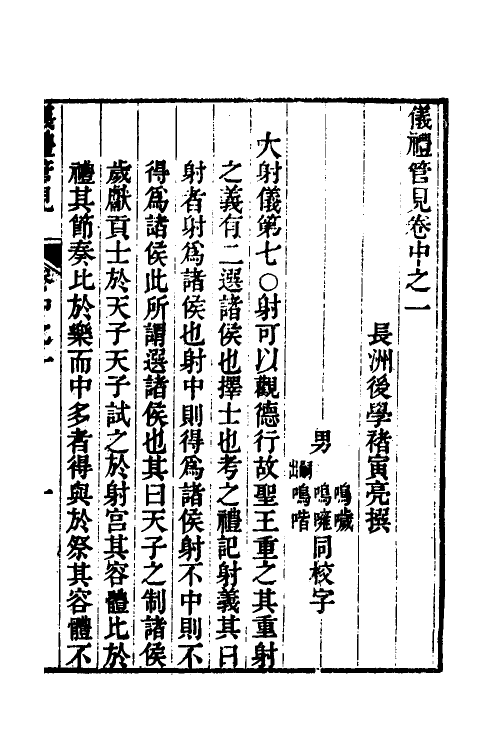 儀禮管見卷中之一
長洲後學褚寅亮撰
男
鳴噦
鳴㕙
出嗣鳴喈
同校字
大射儀第七○射可以觀德行故聖王重之其重射
之義有二選諸侯也擇士也考之禮記射義其曰
射者射爲諸侯也射中則得爲諸侯射不中則不
得爲諸侯此所謂選諸侯也其曰天子之制諸侯
歲獻貢士於天子天子試之於射宮其容體比於
禮其節奏比於樂而中多者得與於祭其容體不
儀禮管見
卷中之一
一